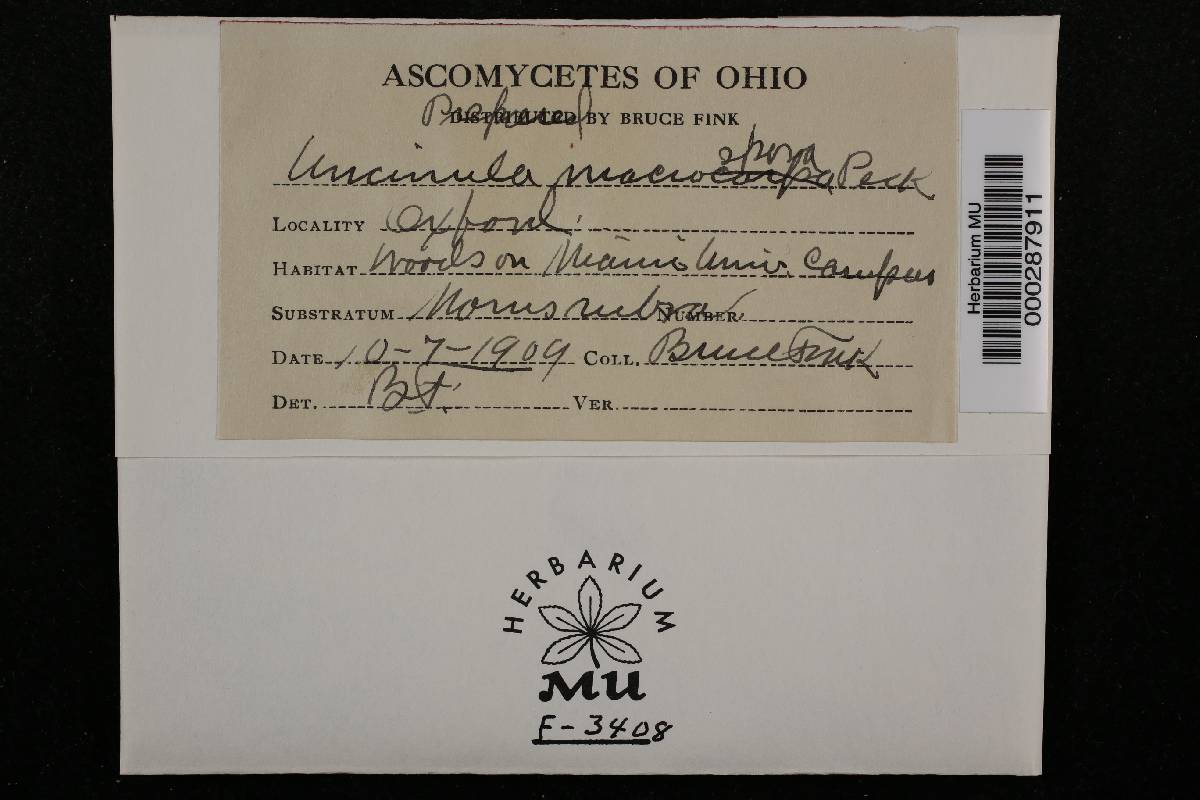 ASCOMYCETES OF OHIO
Prepared
DISTRIBUTED BY BRUCE FINK
spora
Uncinula macrocarpa Peck
LOCALITY Oxford.
HABITAT Woods on Miami Univ. Campus
SUBSTRATUM Morus rubra NUMBER
DATE 10-7-1909 COLL. Bruce Fink
DET. B.F. VER.
Herbarium MU
000287911
HERBARIUM
MU
F-3408